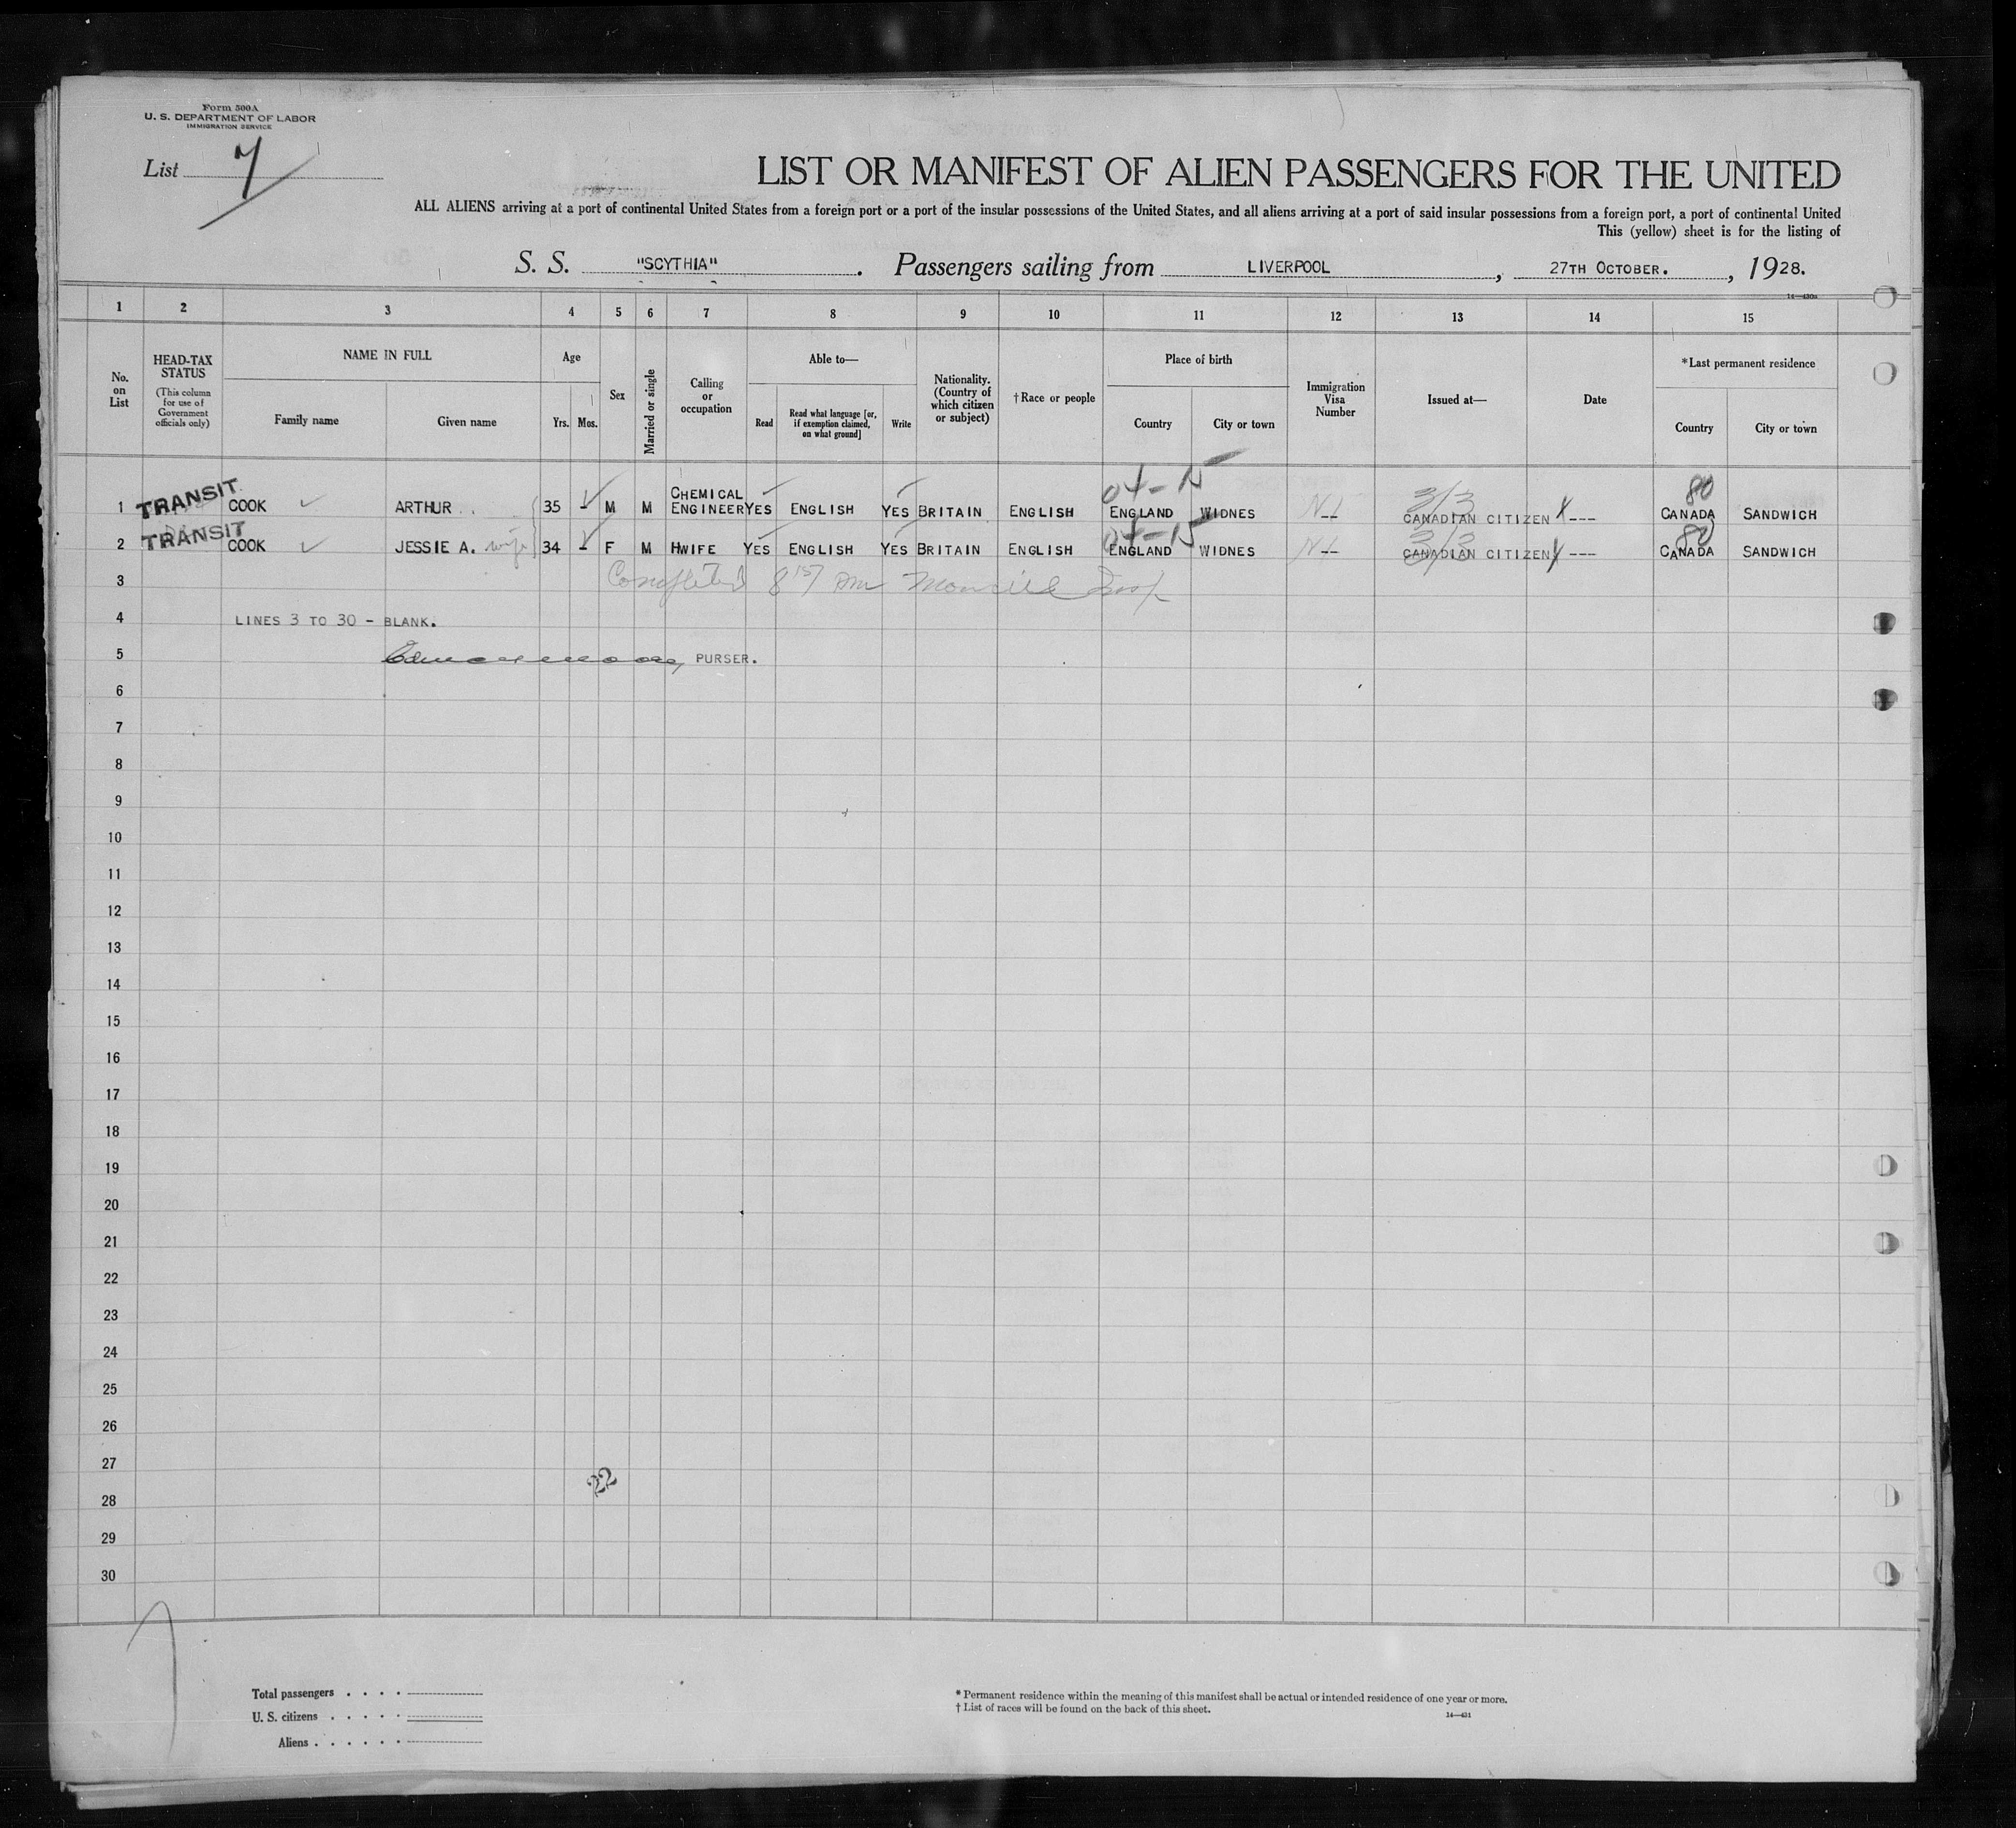 Form 500A
U. S. DEPARTMENT OF LABOR
IMMIGRATION SERVICE
List 7
LIST OR MANIFEST OF ALIEN PASSENGERS FOR THE UNITED
ALL ALIENS arriving at a port of continental United States from a foreign port or a port of the insular possessions of the United States, and all aliens arriving at a port of said insular possessions from a foreign port, a port of continental United
This (yellow) sheet is for the listing of
S. S. "SCYTHIA". Passengers sailing from LIVERPOOL, 27TH OCTOBER., 1928.
1 2 3 4 5 6 7 8 9 10 11 12 13 14 15
No. on List
HEAD-TAX STATUS (This column for use of Government officials only)
NAME IN FULL
Family name Given name
Age
Yrs. Mos.
Sex
Married or single
Calling or occupation
Able to—
Read Read what language [or, if exemption claimed, on what ground] Write
Nationality. (Country of which citizen or subject)
†Race or people
Place of birth
Country City or town
Immigration Visa Number
Issued at—
Date
*Last permanent residence
Country City or town
04-15 80
1 TRANSIT COOK ARTHUR 35 - M M CHEMICAL ENGINEER YES ENGLISH YES BRITAIN ENGLISH ENGLAND WIDNES --- 3/3 CANADIAN CITIZEN X --- CANADA SANDWICH
04-15 80
2 TRANSIT COOK JESSIE A. wife 34 - F M HWIFE YES ENGLISH YES BRITAIN ENGLISH ENGLAND WIDNES --- 3/3 CANADIAN CITIZEN X --- CANADA SANDWICH
3 Completed
4 LINES 3 TO 30 - BLANK.
5 PURSER.
6
7
8
9
10
11
12
13
14
15
16
17
18
19
20
21
22
23
24
25
26
27
22
28
29
30
Total passengers . . . .
U. S. citizens . . . . .
Aliens . . . . . .
* Permanent residence within the meaning of this manifest shall be actual or intended residence of one year or more.
† List of races will be found on the back of this sheet.
14—431